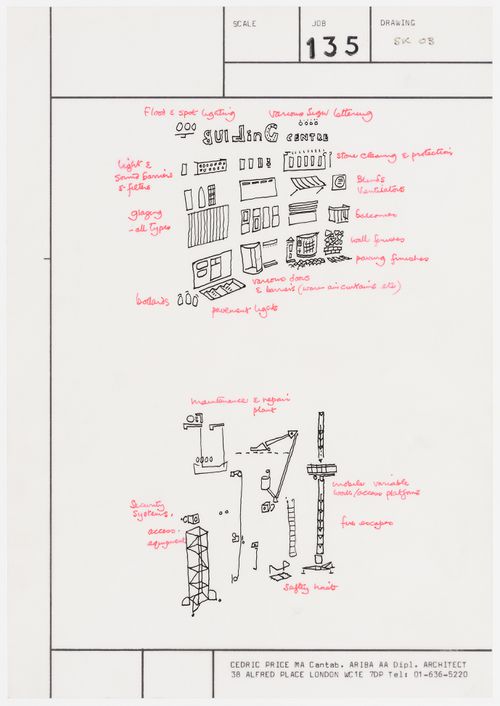 SCALE
JOB
135
DRAWING
SK 03
Flood & spot lighting
Various sign lettering
BUILDING CENTRE
light &
sound barriers
& filters
stone cleaning & protection
Blinds
Ventilators
glazing
- all types
balconies
wall finishes
paving finishes
various doors
& barriers (warm air curtains etc)
bollards
pavement lights
maintenance & repair
plant
mobile variable
access platforms
Security
Systems.
access.
equipment
fire escapes
Safety
CEDRIC PRICE MA Cantab. ARIBA AA Dipl. ARCHITECT
38 ALFRED PLACE LONDON WC1E 7DP Tel: 01-636-5220